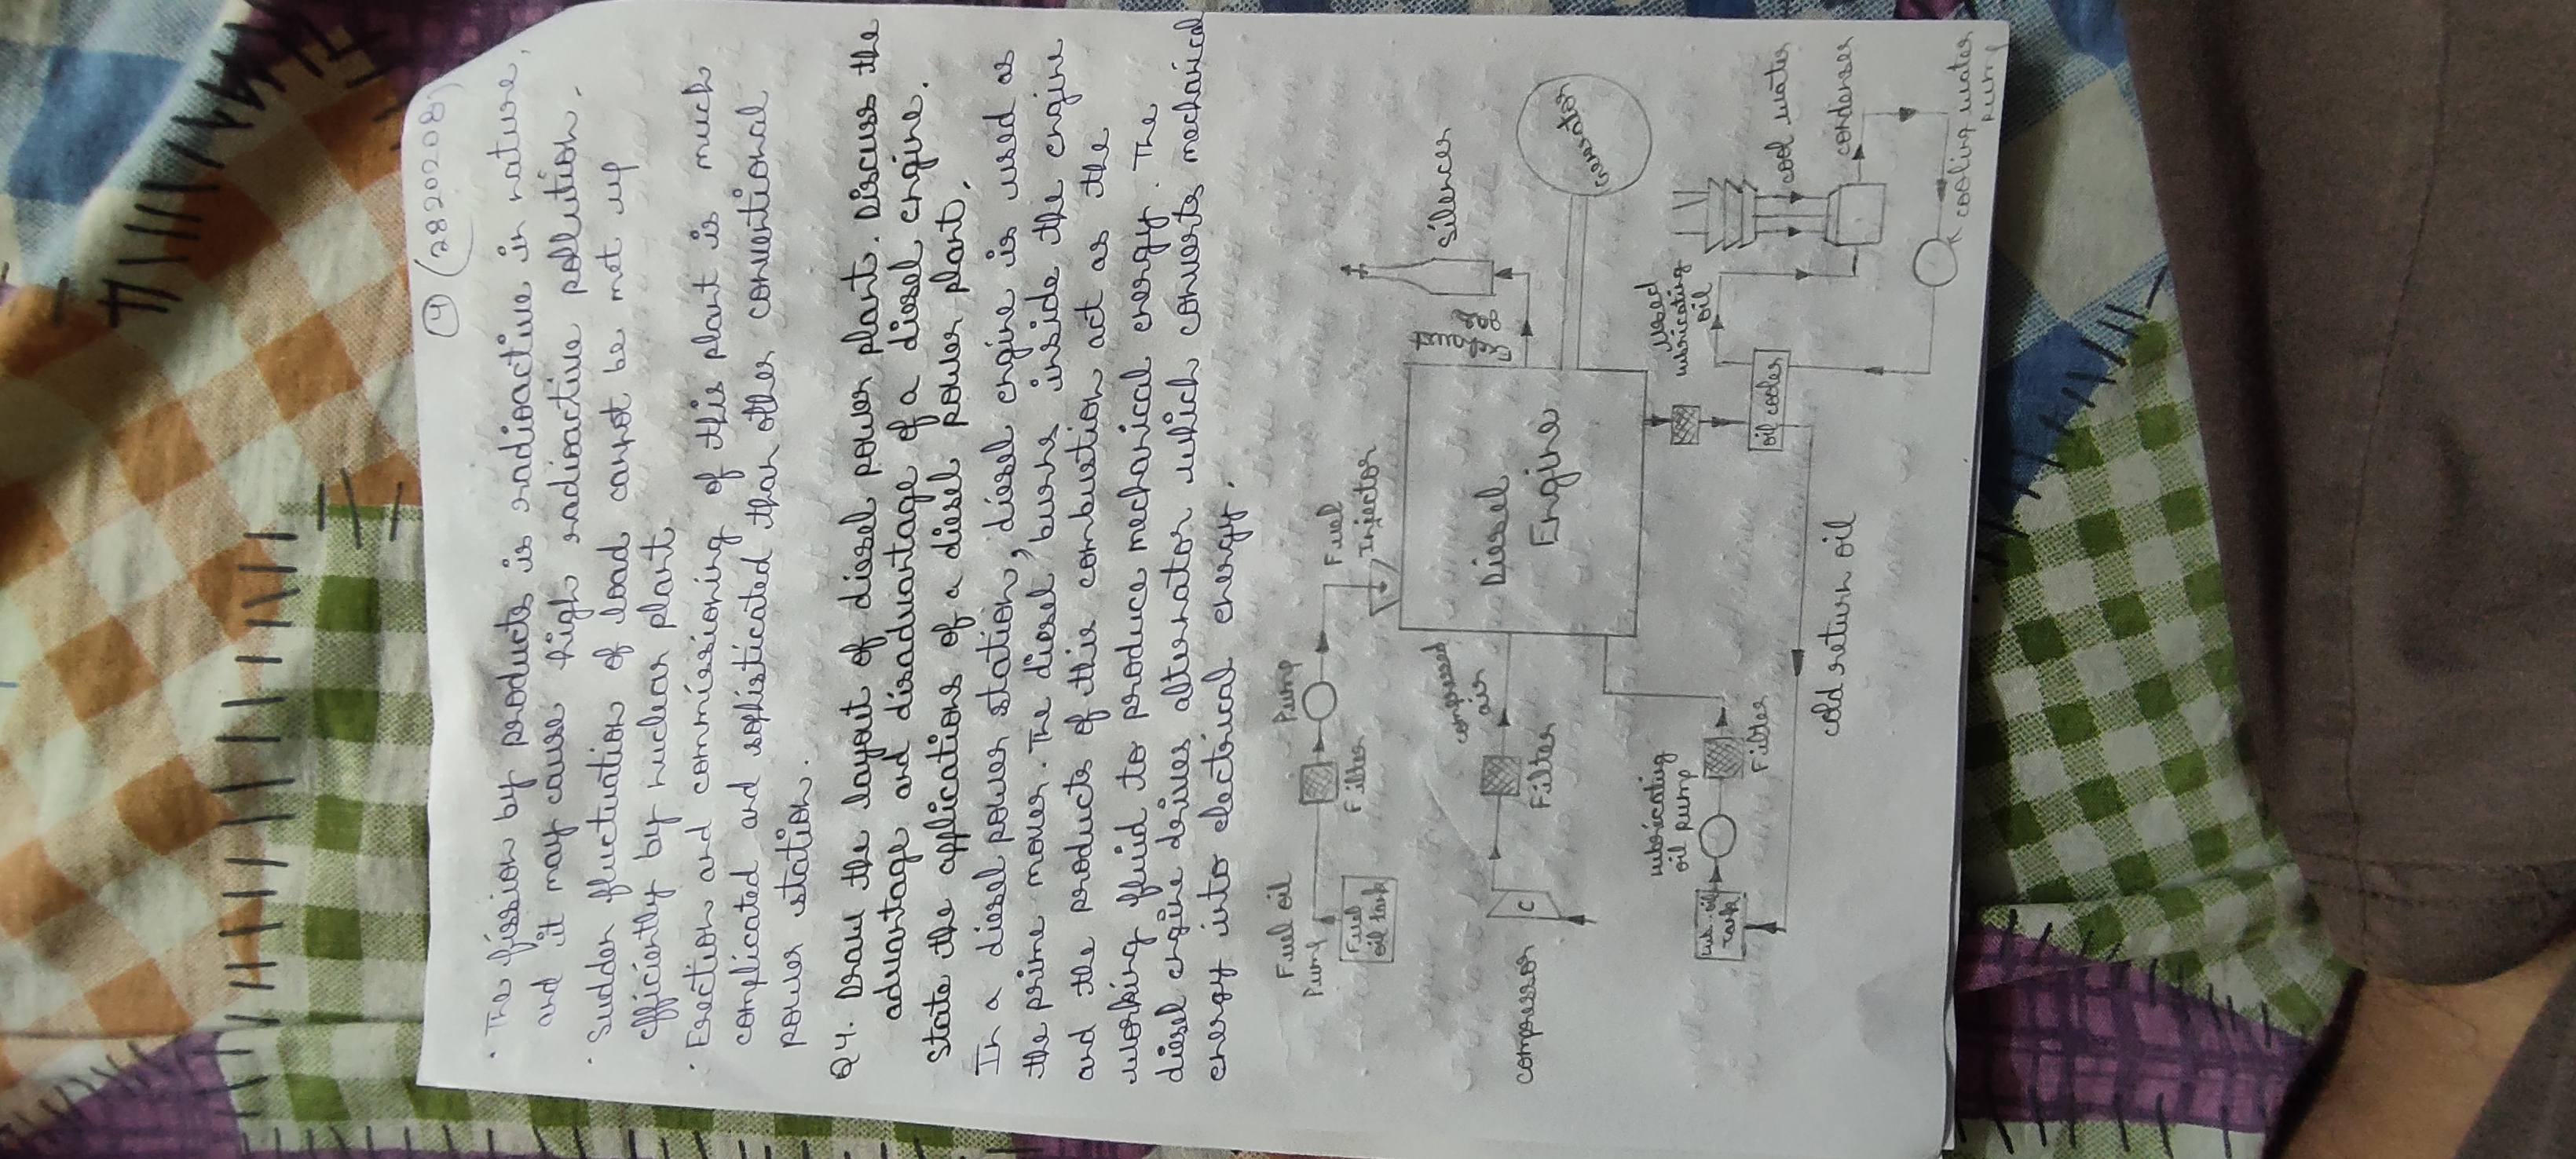 4 (2820208)
· The fission by products is radioactive in nature,
and it may cause high radioactive pollution.
· Sudden fluctuation of load cannot be met up
efficiently by nuclear plant
· Erection and commissioning of this plant is much
complicated and sophisticated than other conventional
power station.
Q4. Draw the layout of diesel power plant. Discuss the
advantage and disadvantage of a diesel engine.
State the applications of a diesel power plant.
In a diesel power station, diesel engine is used as
the prime mover. The diesel burns inside the engine
and the products of this combustion act as the
working fluid to produce mechanical energy. The
diesel engine drives alternator which converts mechanical
energy into electrical energy.
Fuel oil
Pump
Pump
Fuel
oil tank
Filter
Fuel
Injector
compressor
C
Filter
compressed
air
Diesel
Engine
Exhaust
gas
silencer
Generator
lubricating
oil pump
Lub. oil
Tank
Filter
used
lubricating
oil
oil cooler
cool water
cold return oil
condenser
cooling water
pump